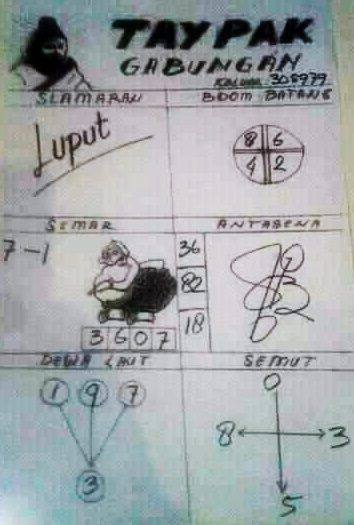 TAYPAK
GABUNGAN
KELUAR 308979
SLAMARAN
BOOM BATANG
Luput
8 6
4 2
SEMAR
ANTASENA
7-1
36
82
18
3 6 0 7
DEWA LAUT
SEMUT
1 9 7
3
0
8 3
5